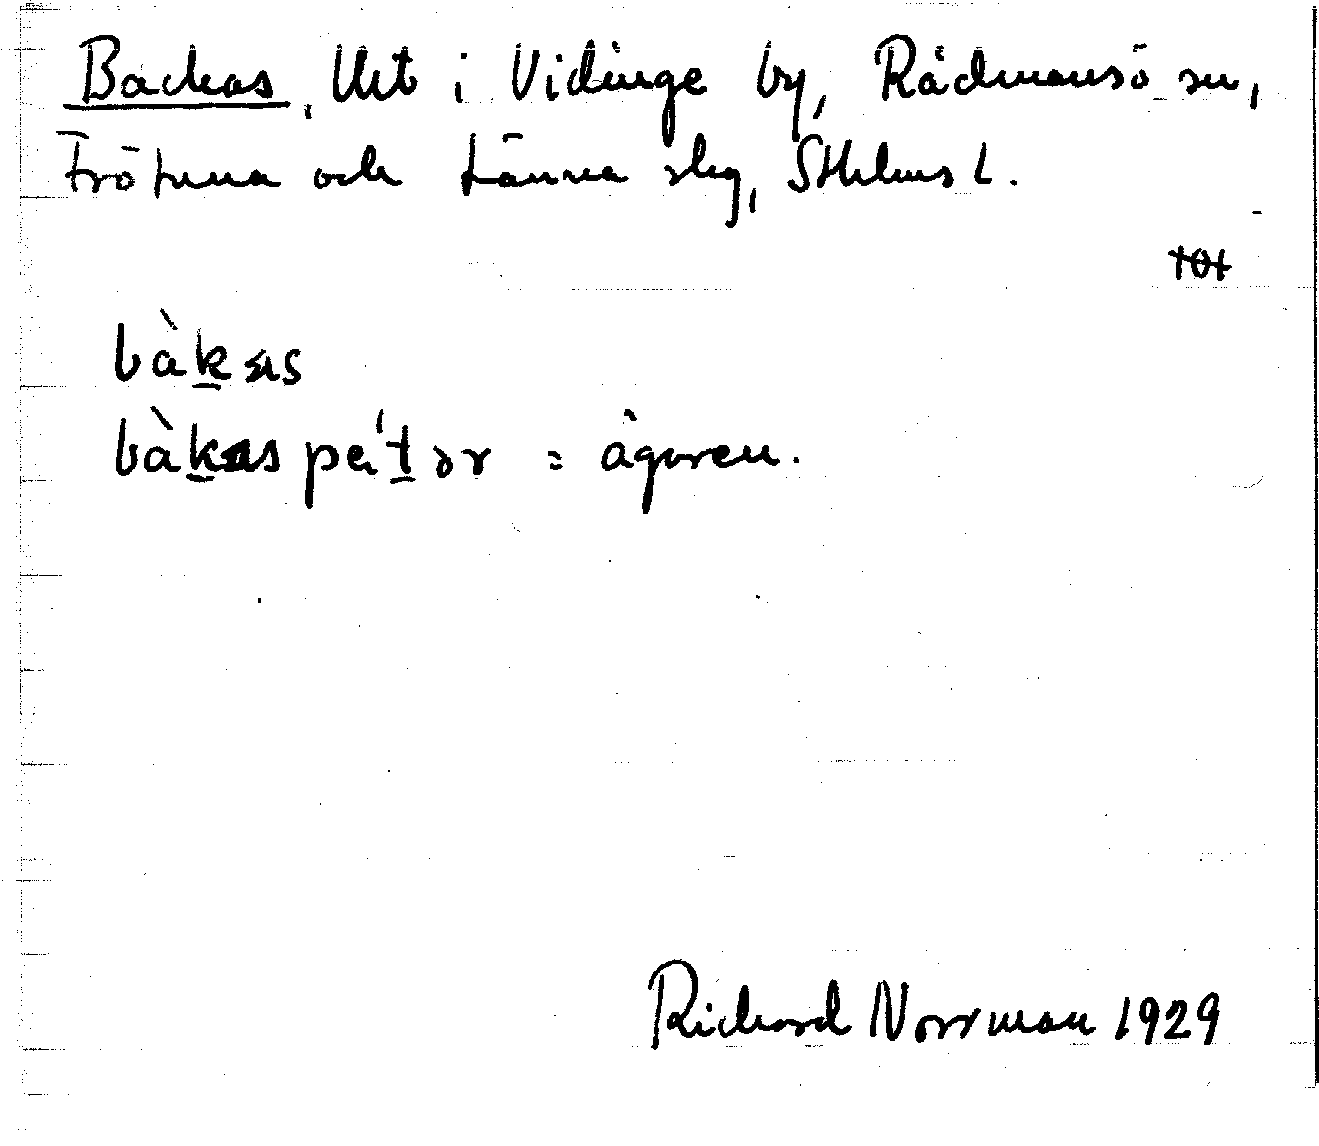 Backas, Uht i Vidinge by, Rådmansö sn,
Frötuna och Länna slg, Sthlms L.
101
bàkas
bàkas pe'tər = ägaren.
Richard Norrman 1929